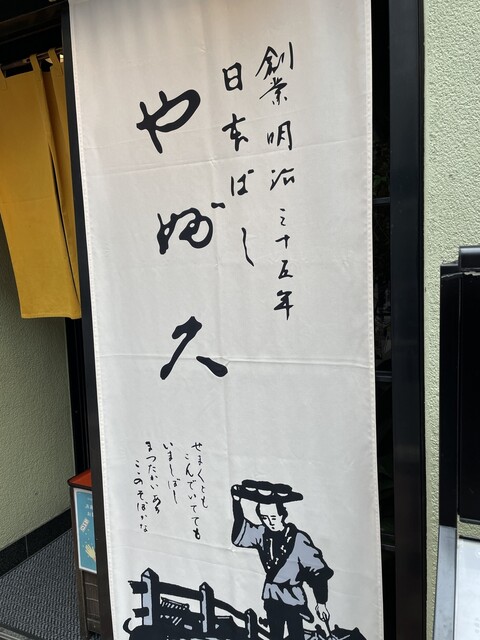 創業明治三十五年
日本ばし
やぶ久
せまくとも
こんでいてても
いましばし
まつたかいある
ここのそばかな